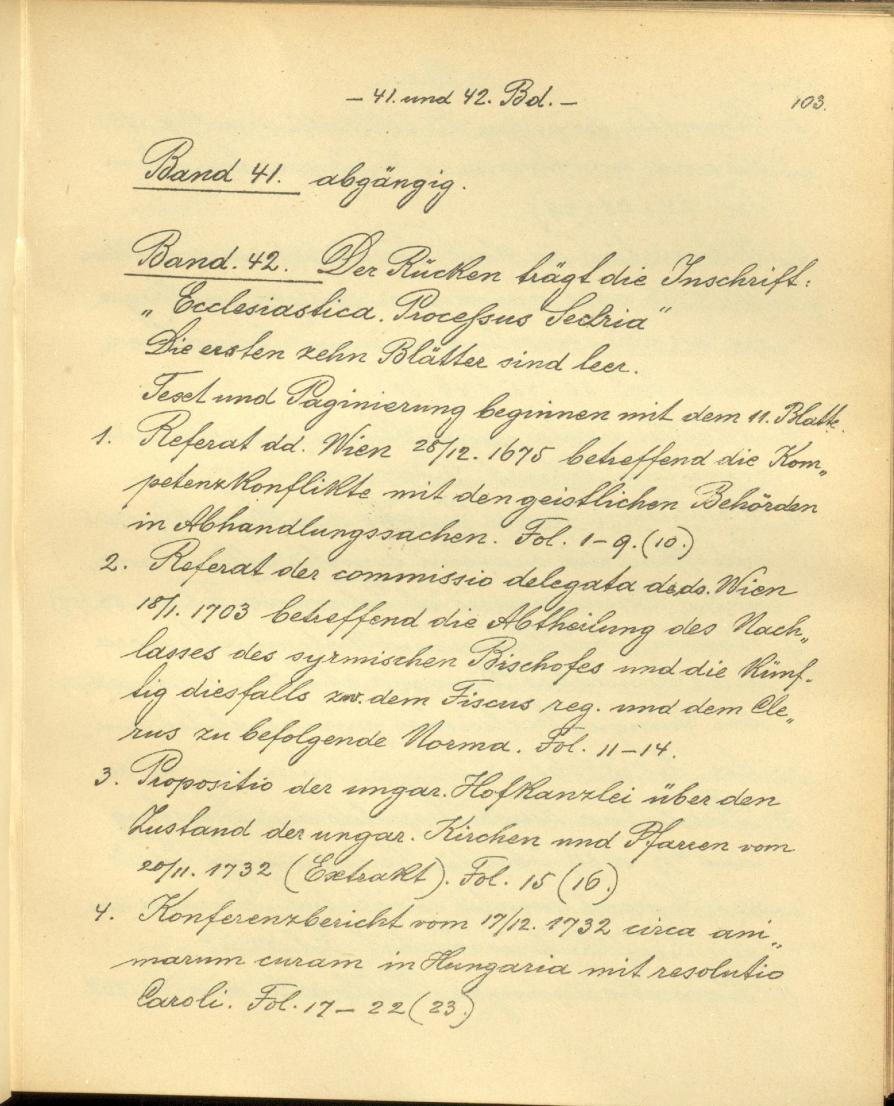 – 41. und 42. Bd. – 103.
Band 41. abgängig.
Band. 42. Der Rücken trägt die Inschrift:
„Ecclesiastica. Processus Sedria“
Die ersten zehn Blätter sind leer.
Text und Paginierung beginnen mit dem 11. Blatte.
1. Referat dd. Wien 28/12. 1675 betreffend die Kom„
petenzkonflikte mit den geistlichen Behörden
in Abhandlungssachen. Fol. 1–9. (10.)
2. Referat der commissio delegata de do. Wien
18/1. 1703 betreffend die Abtheilung des Nach„
lasses des syrmischen Bischofes und die künf-
tig diesfalls zw. dem Fiscus reg. und dem Cle„
rus zu befolgende Norma. Fol. 11–14.
3. Propositio der ungar. Hofkanzlei über den
Zustand der ungar. Kirchen und Pfarren vom
20/11. 1732 (Extrakt). Fol. 15 (16.)
4. Konferenzbericht vom 17/12. 1732 circa ani„
marum curam in Hungaria mit resolutio
Caroli. Fol. 17–22 (23.)